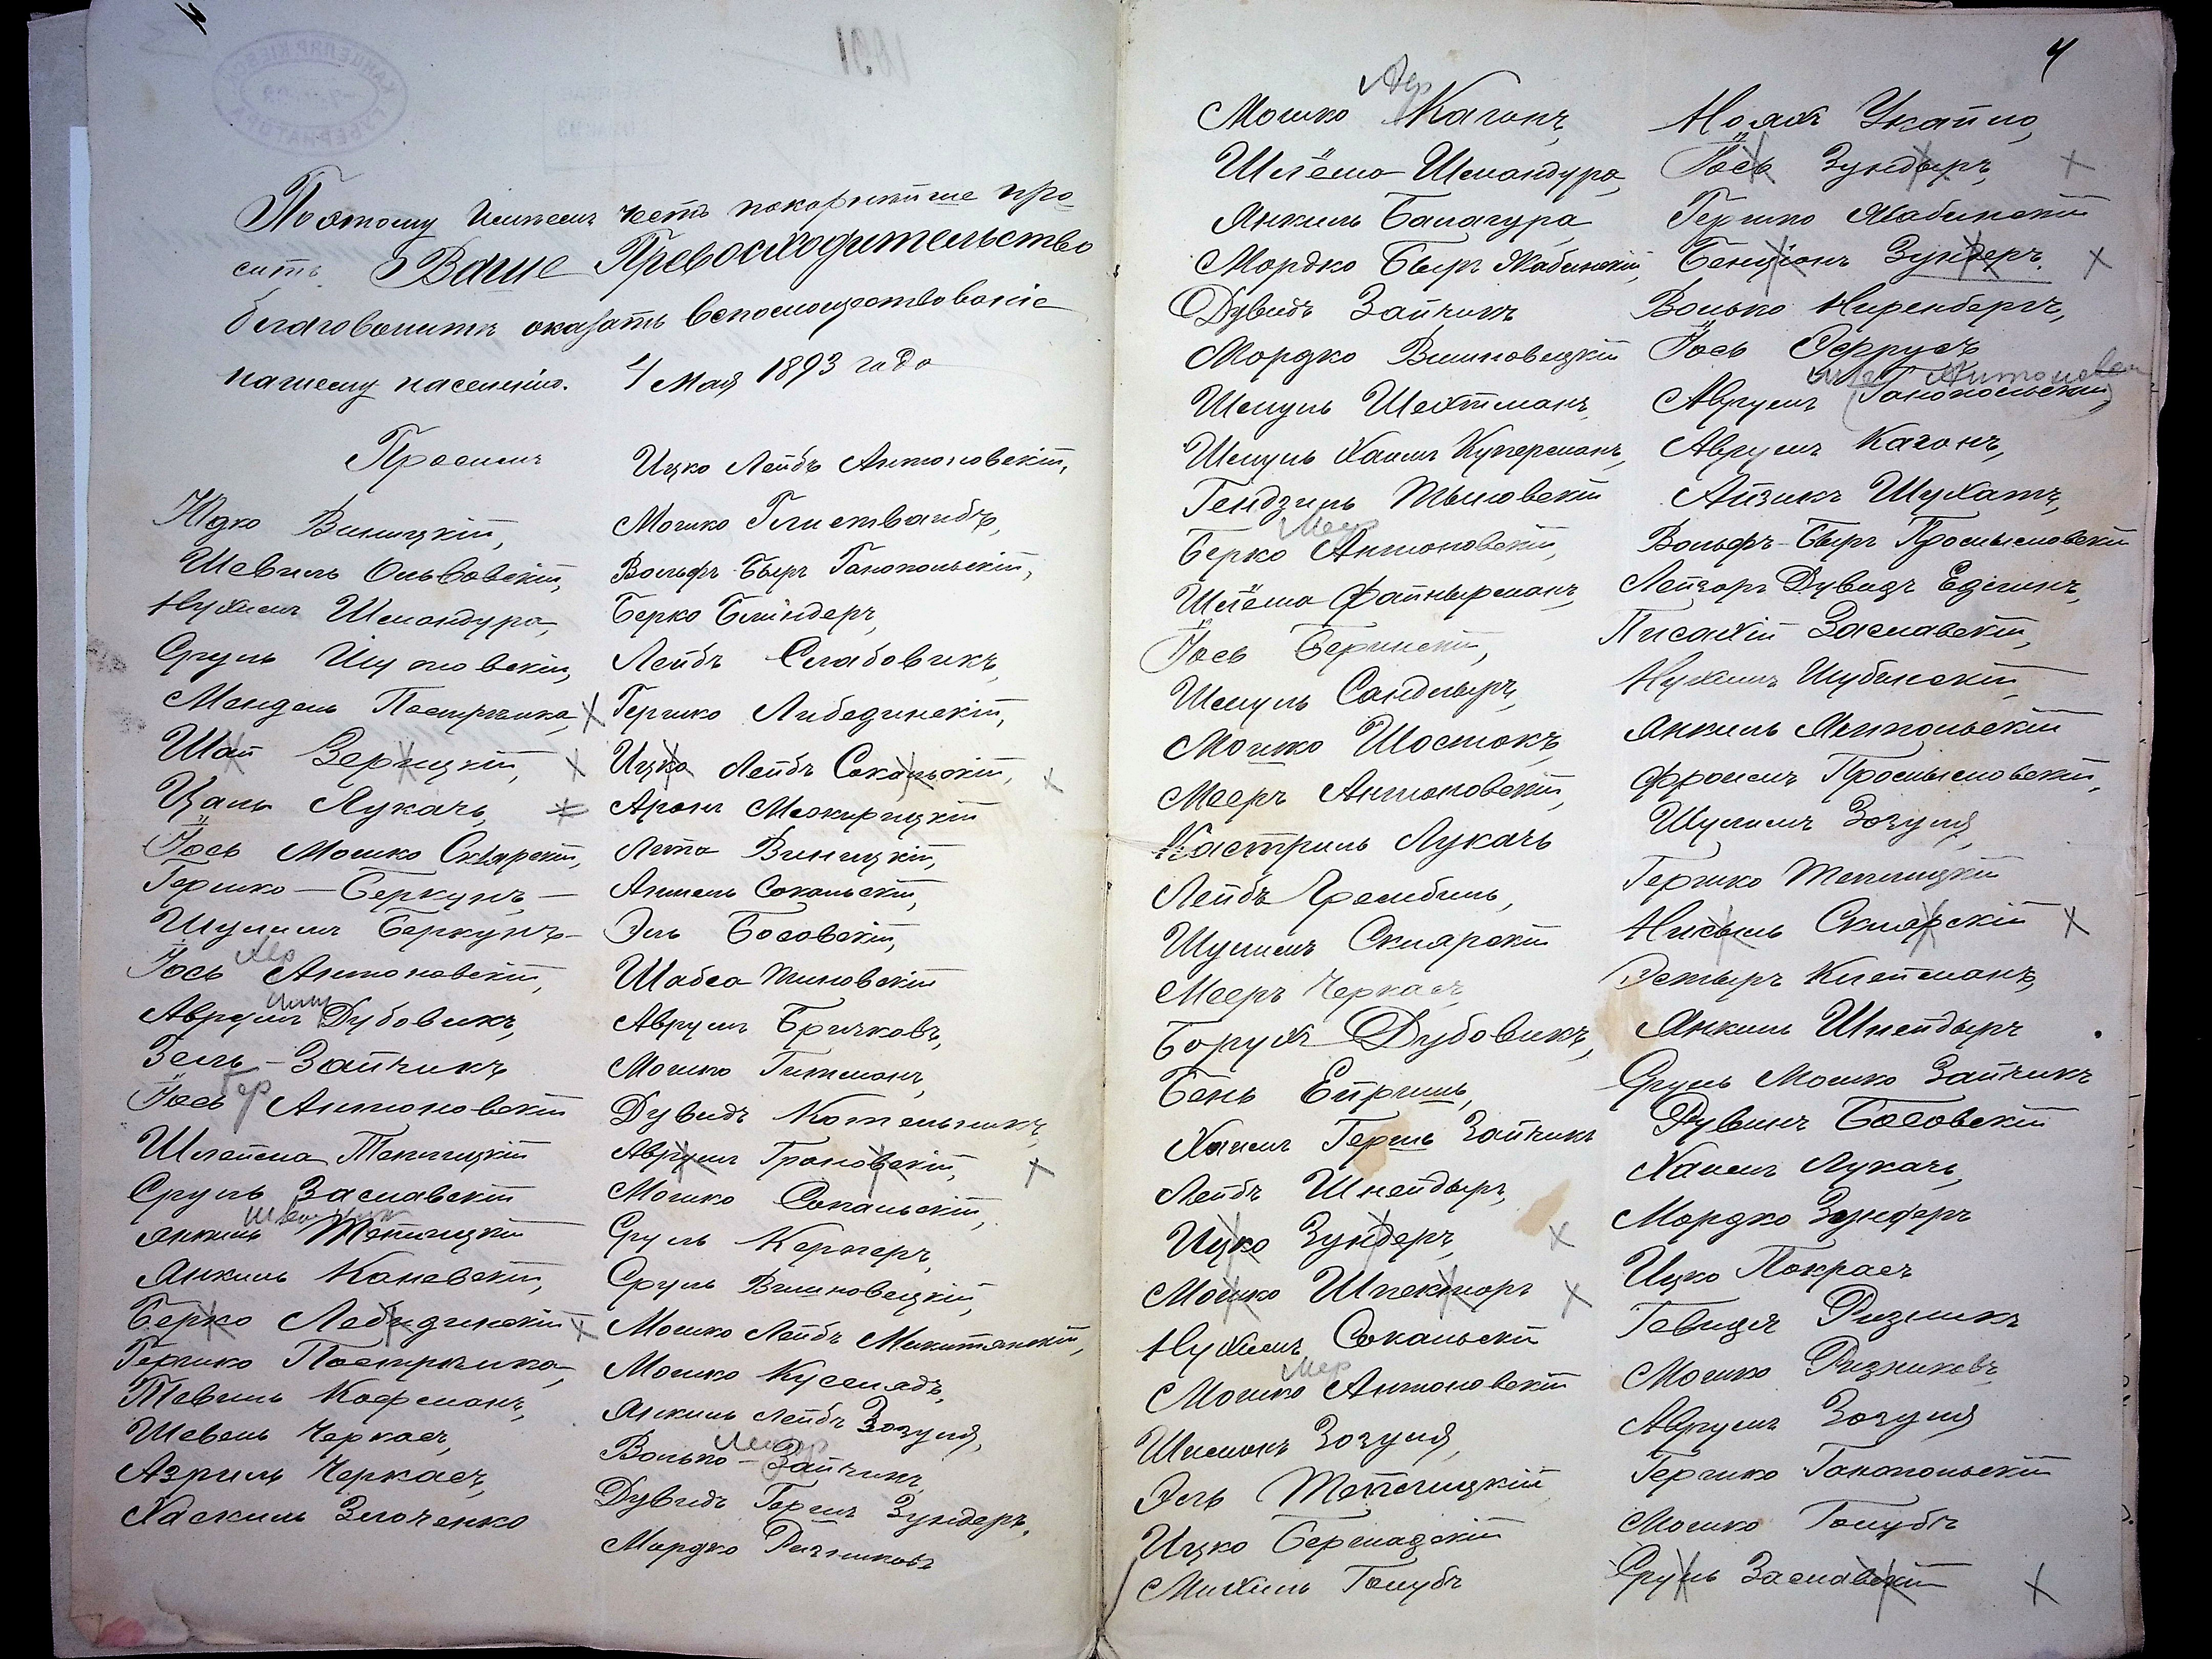 4
Поэтому имѣемъ честь покорнѣйше про
сить Ваше Превосходительство
благоволить оказать вспомоществованіе
нашему населенію. 4 Мая 1893 года
Просимъ
Юдко Виницкій,
Шевель Ольвовскій,
Нухимъ Шмандура,
Сруль
Мендель Пастрика,
Шая Зерицкій,
Цаль Лукачъ,
Іось Мошко Склярскій,
Гершко Беркунъ
Шулимъ Беркунъ
Авр
Іось Антоновскій,
Аврумъ Дубовикъ,
Зель-Зайчикъ
Гер
Іось Антоновскій
Шлейма Теплицкій
Сруль Заславскій
Янкель Теплицкій
Янкель Каневскій,
Берко Лебидинскій
Гершко Пастрика,
Тевель Кофманъ,
Шевель Черкасъ,
Азриль Черкасъ,
Хаскиль Злоченко
Ицко Лейбъ Антоновскій,
Мошко Глиствандъ,
Вольфъ-Беръ Ганопольскій,
Берко Блиндеръ,
Лейбъ Слабовикъ,
Гершко Либединскій,
Ицко Лейбъ Сокальскій,
Аронъ Межирицкій
Лита Виницкій,
Аншель Сокальскій,
Эль Босовскій,
Шабса Тиновскій
Аврумъ Бричковъ,
Мошко Гитманъ,
Дувидъ Котельникъ,
Аврумъ Грановскій,
Мошко Сокальскій,
Сруль Кернеръ,
Сруль Вишновецкій,
Мошко Лейбъ Микитянскій,
Мошко
Янкель Лейбъ Зозуля,
Волько-Зайчикъ,
Дувидъ Гершъ Зундеръ,
Мордко Ризниковъ
4
Авр
Мошко Кагонъ,
Шлёма Шмандура,
Янкель Балагура,
Мордко Беръ Жабинскій,
Дувидъ Зайчикъ
Мордко Вишновецкій
Шмуль Шехтманъ,
Шмуль Хаимъ Куперманъ,
Гендзиль Тыновскій
Меер
Берко Антоновскій,
Шлёма Файнерманъ,
Іось Бершскій,
Шмуль Сандлыръ,
Мошко Шостокъ,
Мееръ Антоновскій,
Кастриль Лукачъ
Лейбъ Грембиль,
Шулимъ Склярскій
Мееръ Черкасъ,
Борухъ Дубовикъ,
Бень Епришъ,
Хаимъ Гершъ Зайчикъ
Лейбъ Шнейдыръ,
Ицко Зундеръ,
Мошко Шпекторъ
Нухимъ Сокальскій
Мер
Мошко Антоновскій
Шимонъ Зозуля,
Эль Теплицкій
Ицко Бершадскій
Михиль Голубъ
Ноахъ Укайло,
Іось Зундыръ,
Гершко Жабинскій
Бенціонъ Зундеръ,
Волько Ниренбергъ,
ІосьФеррусъ
Антоновск
Аврумъ (Ганопольскій)
Аврумъ Кагонъ,
Айзикъ Шухатъ,
Вольфъ-Беръ Промысловскій
Лейзоръ Дувидъ Едлинъ,
Писахій Заславскій,
Нухимъ Шубинскій
Янкель Ямпольскій
Фроимъ Промысловскій,
Шулимъ Зозуля,
Гершко Теплицкій
Нисель Склярскій
Эстыръ Клейманъ,
Янкель Шнейдыръ
Сруль Мошко Зайчикъ
Рувинъ Босовскій
Хаимъ Лукачъ,
Мордко Зундеръ
Ицко Покрасъ
Гевшя Ризникъ
Мошко Ризниковъ,
Аврумъ Зозуля
Гершко Ганопольскій
Мошко Голубъ
Сруль Заславскій